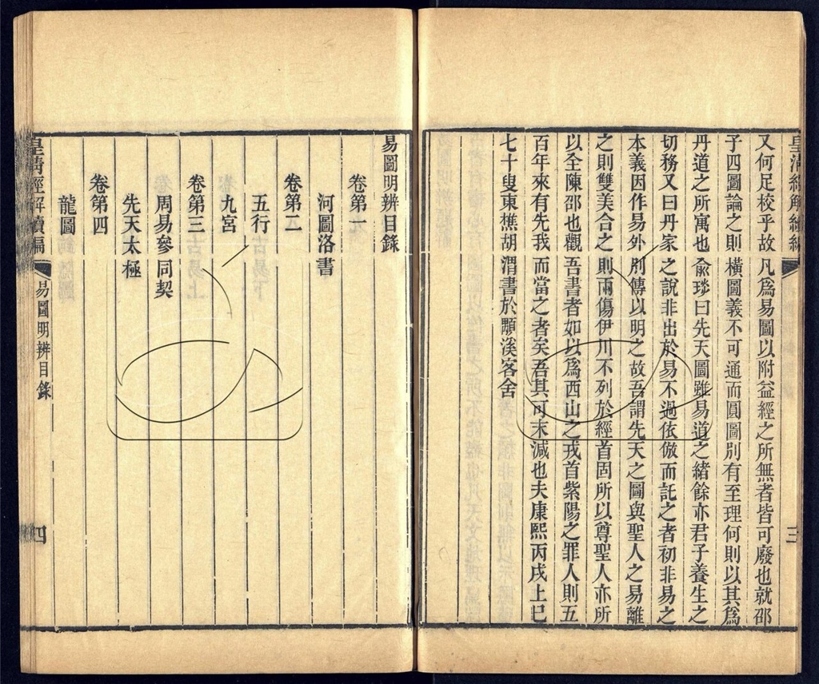 皇清經解續編
三
又何足校乎故凡爲易圖以附益經之所無者皆可廢也就邵
子四圖論之則橫圖義不可通而圓圖別有至理何則以其爲
丹道之所寓也俞琰曰先天圖雖易道之緖餘亦君子養生之
切務又曰丹家之說非出於易不過依倣而託之者初非易之
本義因作易外別傳以明之故吾謂先天之圖與聖人之易離
之則雙美合之則兩傷伊川不列於經首固所以尊聖人亦所
以全陳邵也觀吾書者如以爲西山之戎首紫陽之罪人則五
百年來有先我而當之者矣吾其可末減也夫康熙丙戌上巳
七十叟東樵胡渭書於顓溪客舍
易圖明辨目錄
卷第一
河圖洛書
卷第二
五行
九宮
卷第三
周易參同契
先天太極
卷第四
龍圖
皇淸經解續編
易圖明辨目錄
四